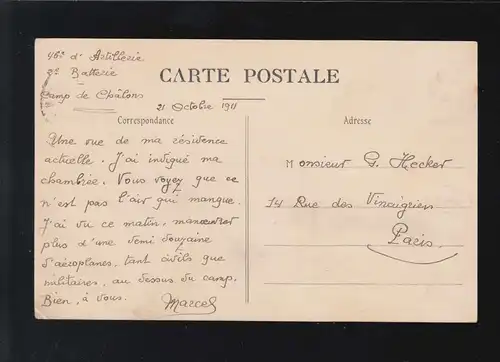 46e d'Artillerie
2e Batterie
Camp de Châlons
CARTE POSTALE
21 Octobre 1911
Correspondance
Adresse
Une vue de ma résidence
actuelle. J'ai indiqué ma
chambrée. Vous voyez que ce
n'est pas l'air qui manque.
J'ai vu ce matin, manœuvrer
plus d'une demi douzaine
d'aéroplanes, tant civils que
militaires, au dessus du camp.
Bien, à vous.
Marcel
Monsieur G. Hecker
14 Rue des Vinaigriers
Paris.